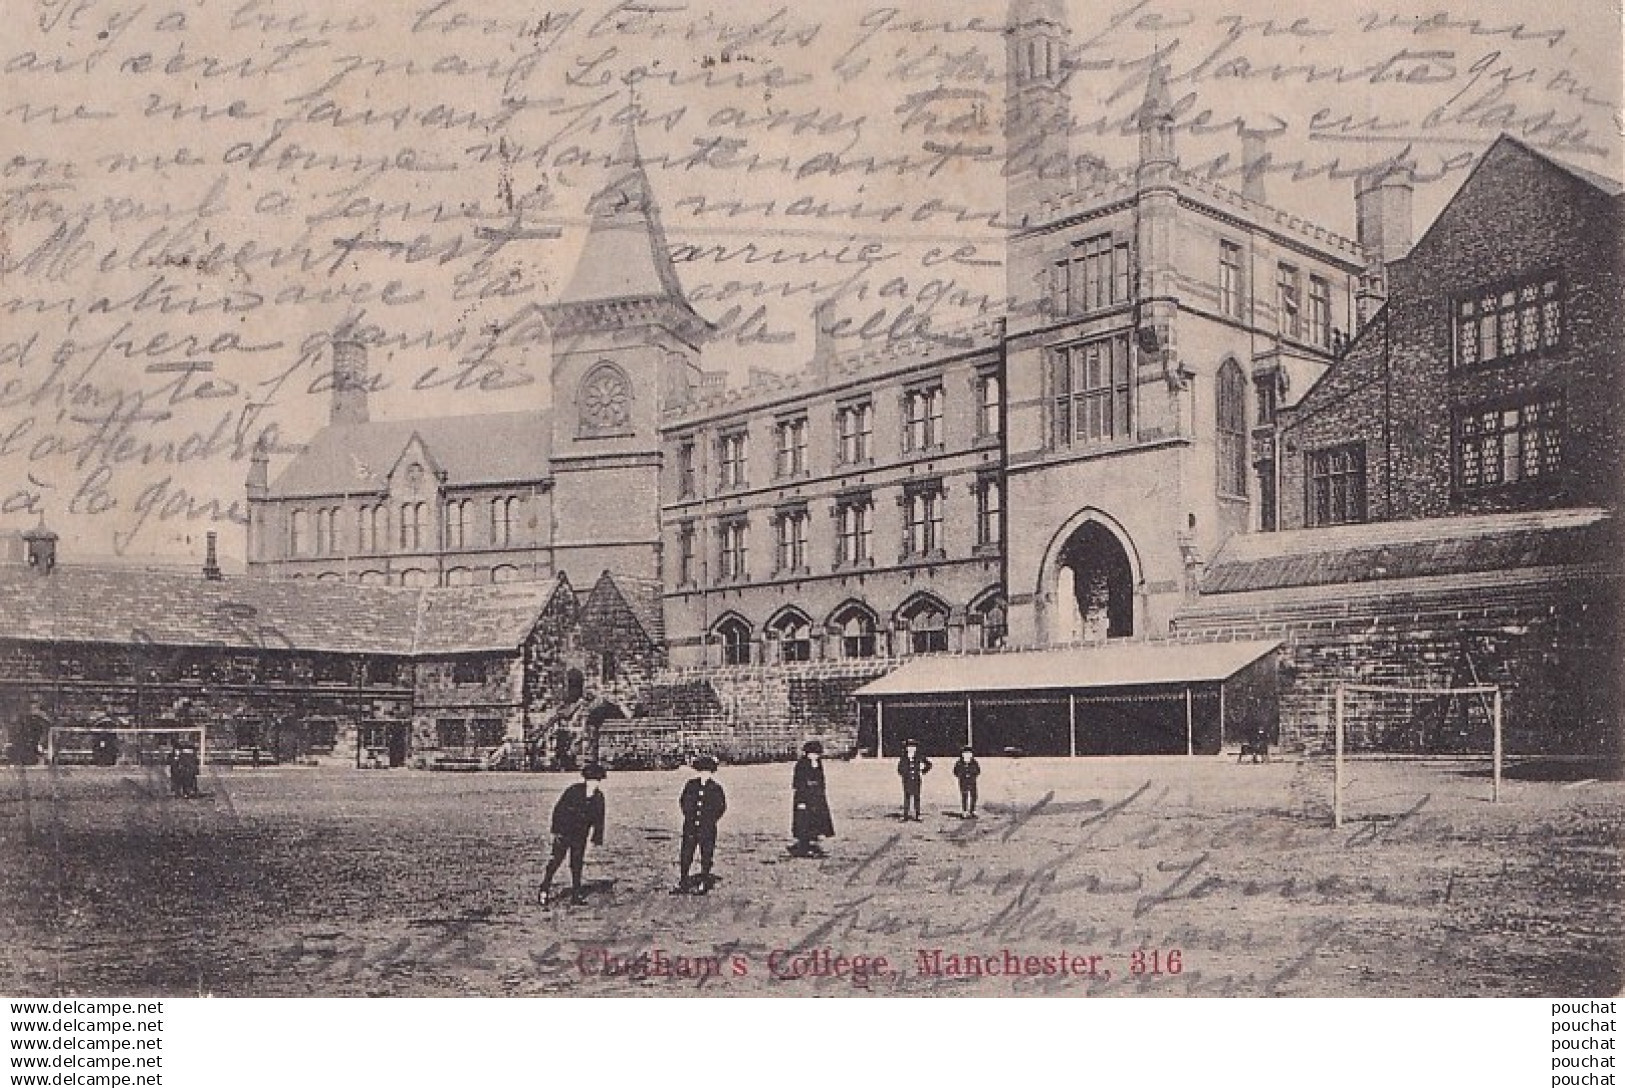 Il y a bien longtemps que je ne vous
ai écrit mais Lorne s'étant plainte qu'on
ne me faisait pas assez travailler en classe
on me donne maintenant beaucoup
travail à faire à la maison
Millicent est arrivée ce
matin avec la compagnie
d'opera dans laquelle elle
chante j'ai été
l'attendre
à la gare
et j'irai demain
la voir jouer
par Maman
elle est
Chetham's College, Manchester, 316
www.delcampe.net
www.delcampe.net
www.delcampe.net
www.delcampe.net
www.delcampe.net
pouchat
pouchat
pouchat
pouchat
pouchat